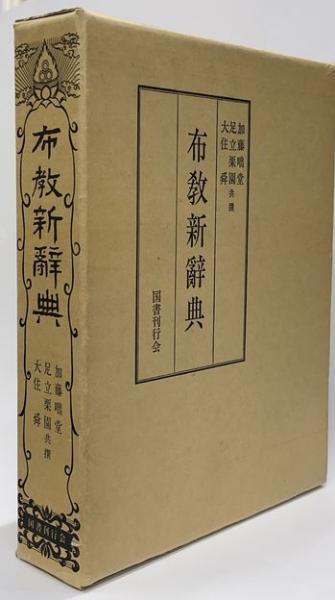 加藤咄堂
足立栗園共撰
大住舜
布教新辭典
国書刊行会
布教新辭典
加藤咄堂
足立栗園共撰
大住舜
国書刊行会